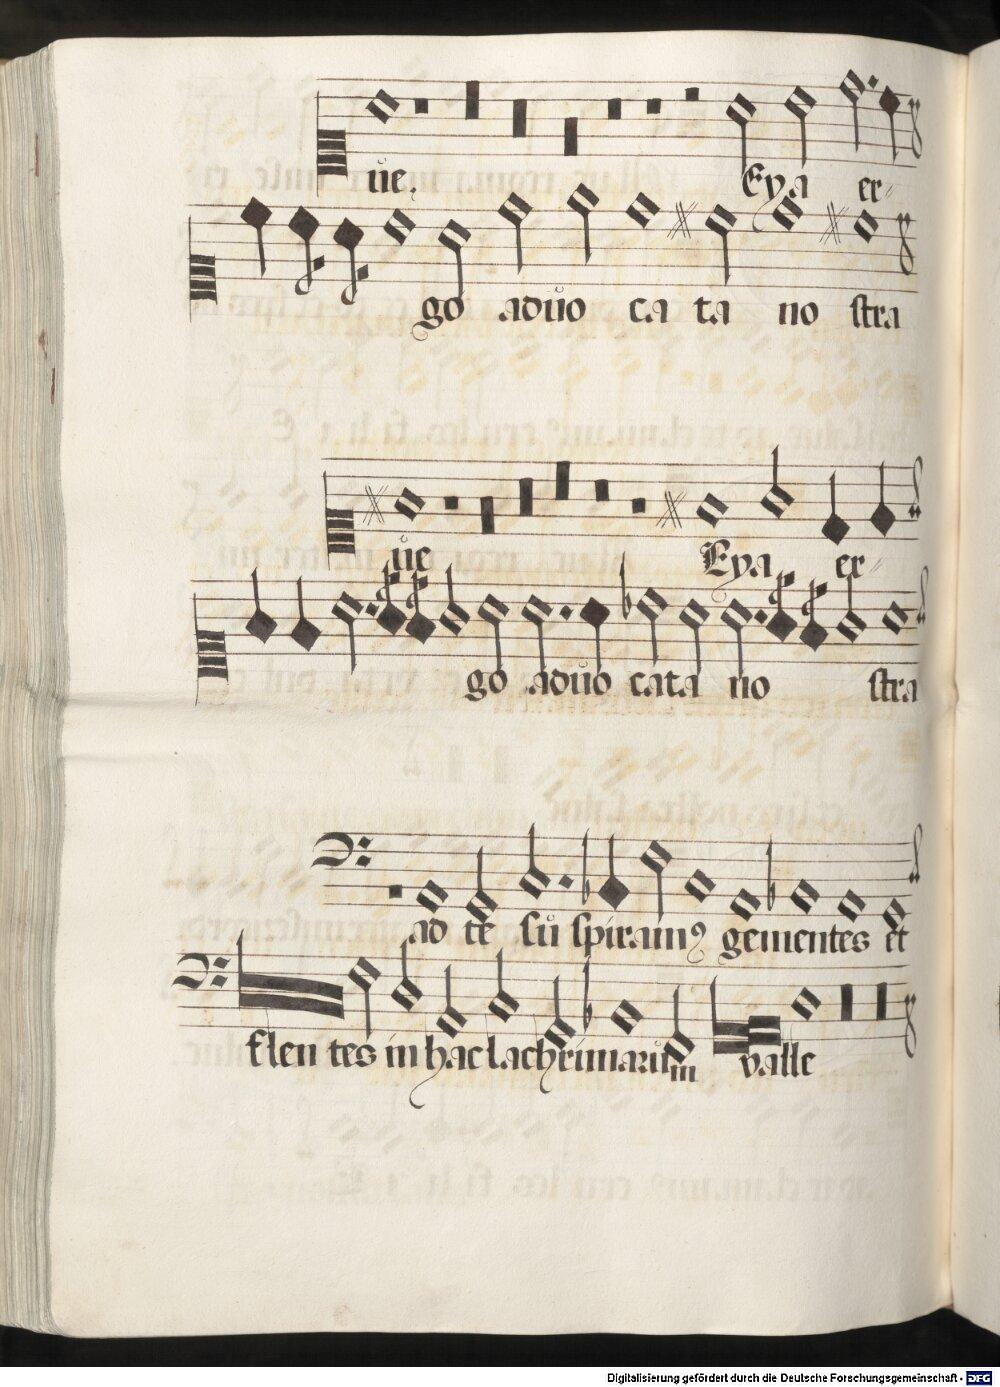 ůe. Eya er-
go aduo ca ta no stra
ůe Eya er-
go aduo cata no stra
ad te sů spiramꝰ gementes et
flen tes in hac lachrimarů m valle
Digitalisierung gefördert durch die Deutsche Forschungsgemeinschaft - DFG